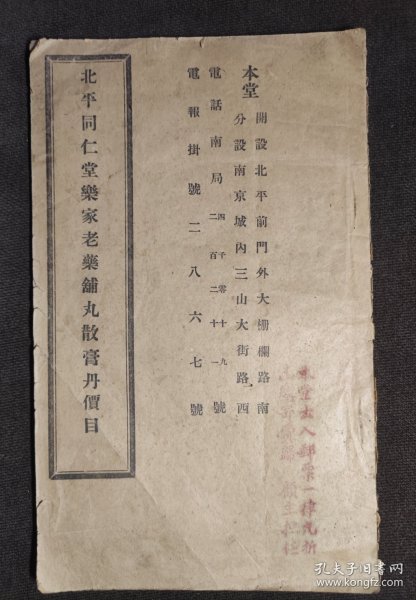 本堂
開設北平前門外大柵欄路南
分設南京城內三山大街路西
電話南局 四千零十九 二百二十一 號
電報掛號二八六七號
北平同仁堂樂家老藥舖丸散膏丹價目
孔夫子旧书网
www.kongfz.com